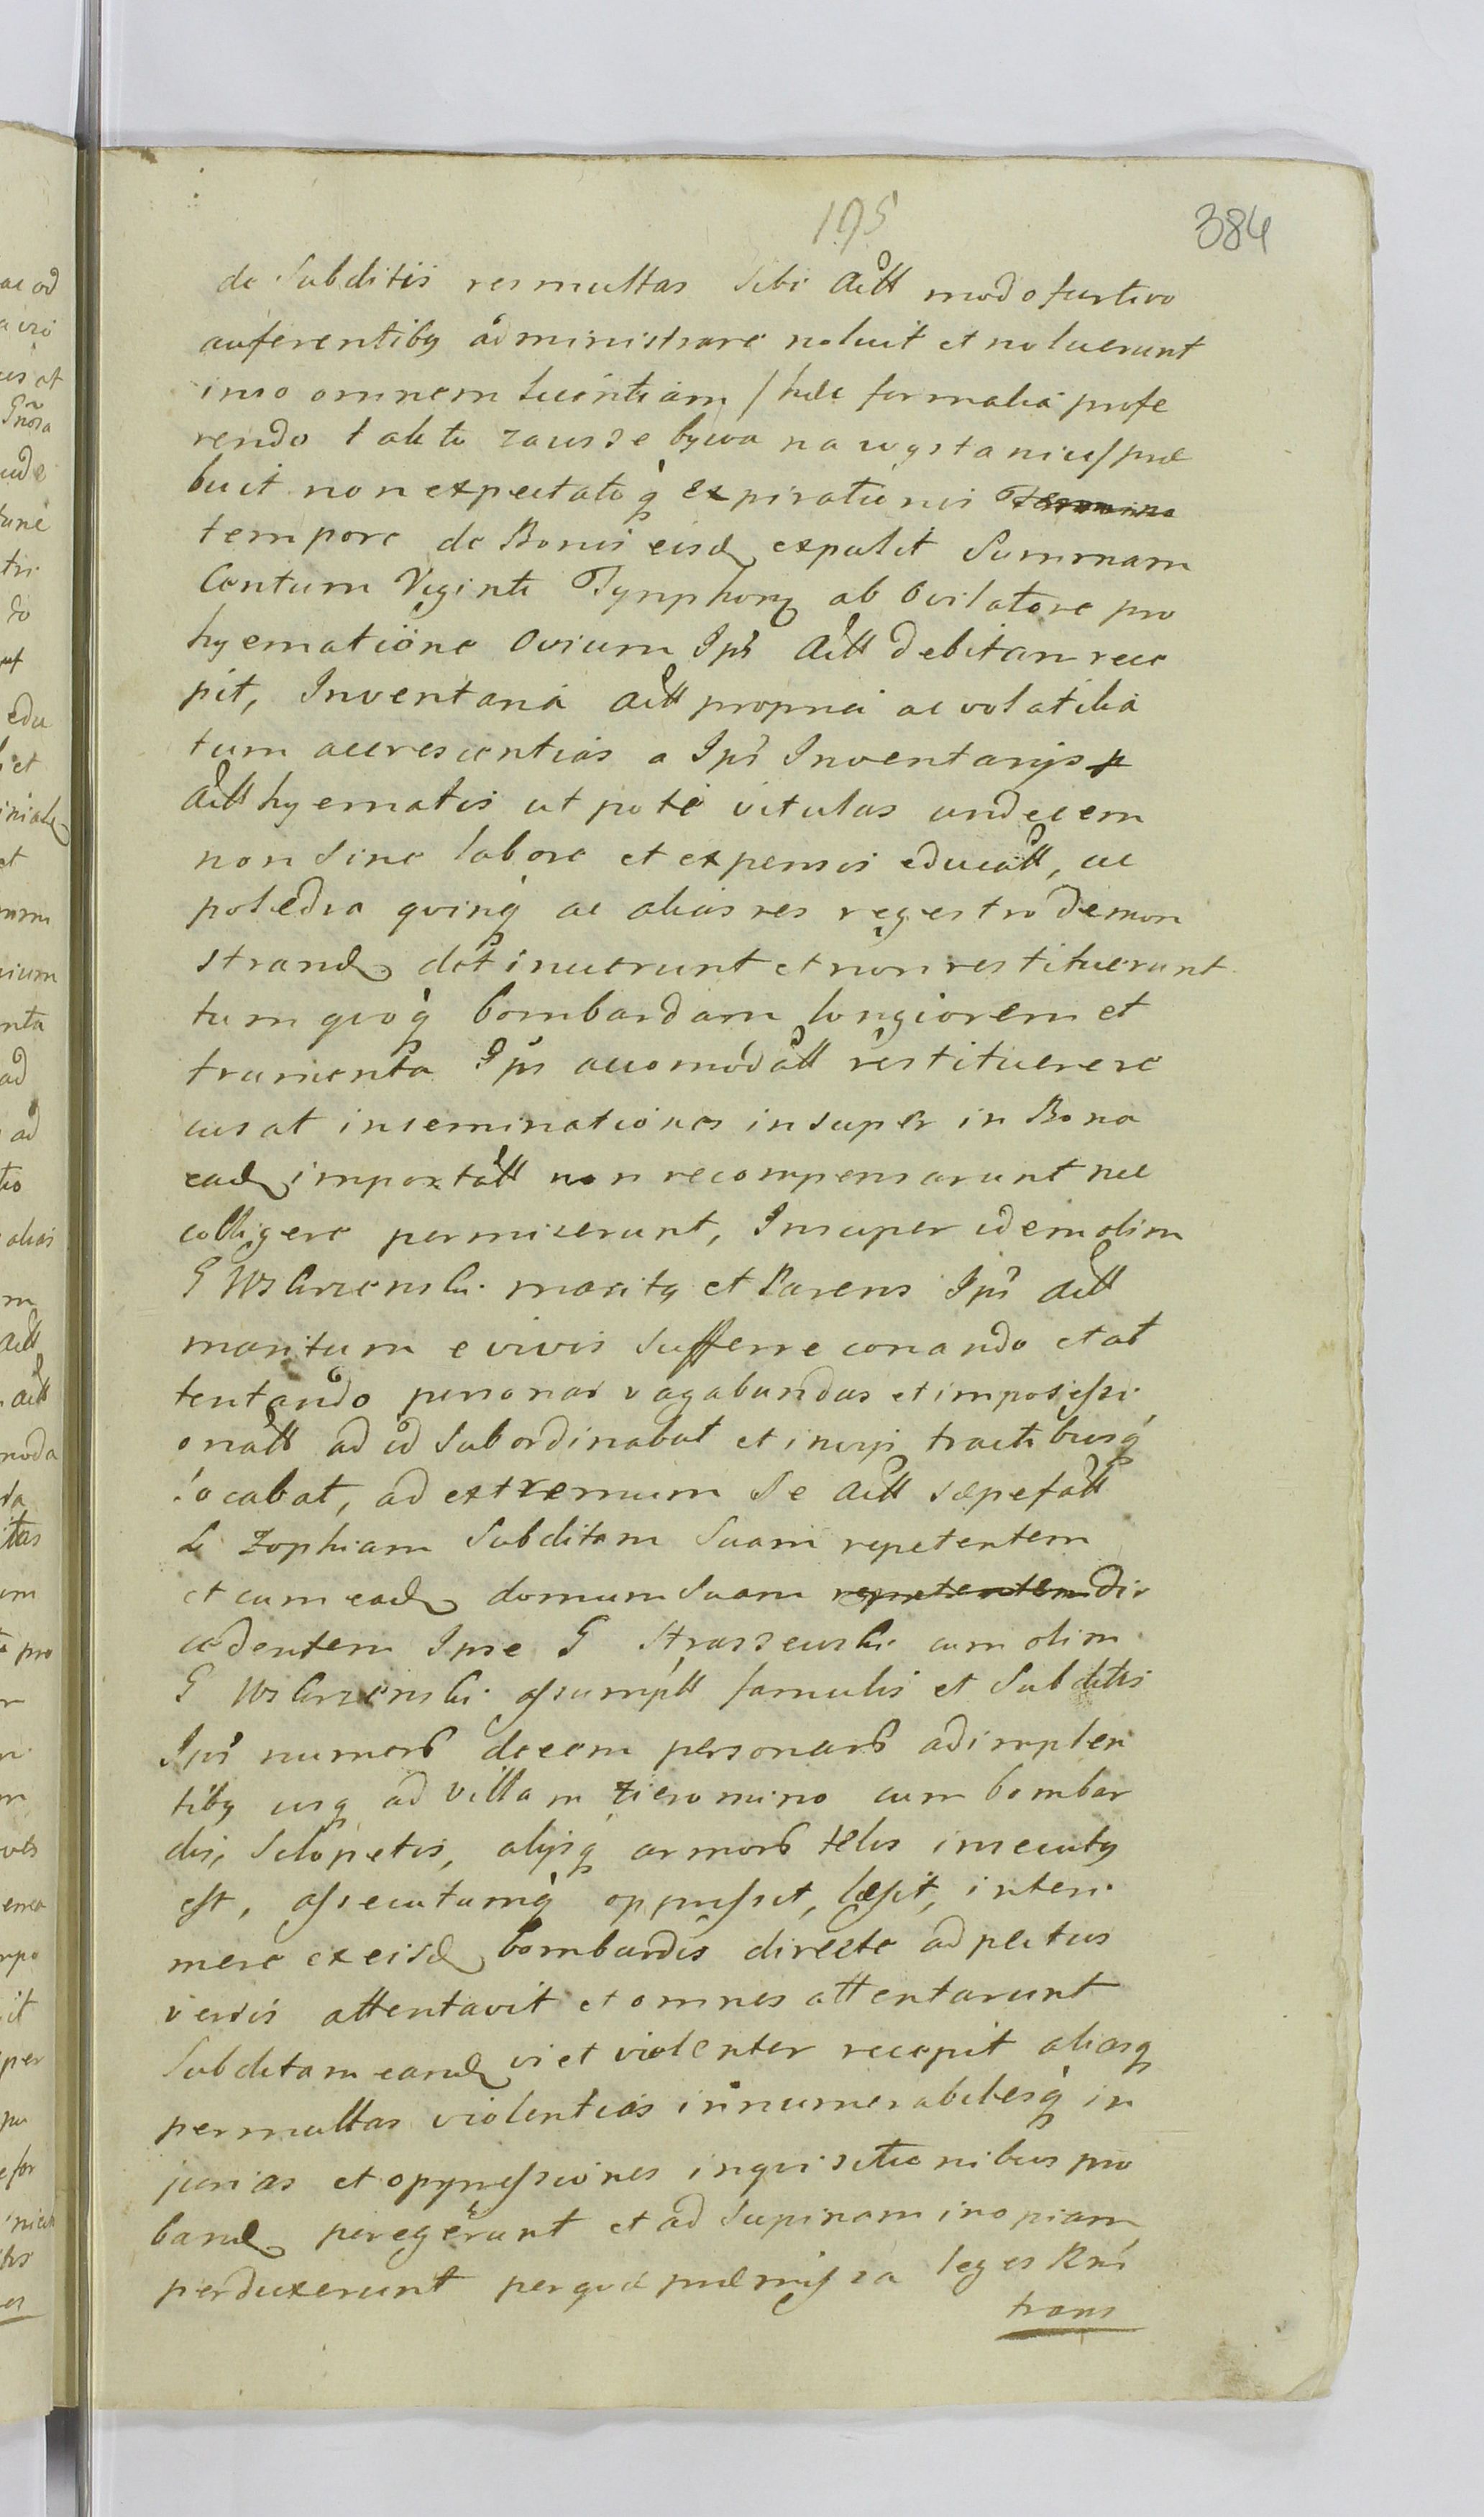 195
384
de Subditis res multas Sibi Actt modo furtivo
auferentibꝫ administrare noluit et noluerunt
imo omnem licentiam /hæc formalia profe
rendo tak to zawsze bywa na wystaniu/ præ
buit non expectatoq̀ expirationis Termino
tempore de Bonis eisd expulit Summam
Centum Viginti Tynphonꝝ ab Ovilatore pro
hyematione Ovium Ipi Actt debitam rece
pit, Inventaria Actt propria ac volatilia
tum accrescentias a Ipi Inventarijs p
Actt hyematis ut pote vitulas undecem
non Sine labore et expensis educatt, ac
poledra qvinq̀ ac alias res regestro demon
strand detinuerunt et non restituerunt
tum qvoq̀ bombardam longiorem et
frumenta Ipis accomodatt restituere re
cusat inseminationes insuper in Bona
ead importatt non recompensarunt nec
colligere permiserunt, Insuper idem olim
G Wskrzenski maritꝫ et Parens Ipi Actt
maritum e vivis Sufferre conando et at
tentando personas vagabundas et impossessi
onatt ad id Subordinabat et incysi tractibusq̀
locabat, ad extremum Se Actt sæpefatt
L Zophiam Subditam Suam repetentem
et cum ead domum Suam repetentem dis
cedentem Ipse G Strasz​ewski cum olim
G Wskrzenski assumptt famulis et Subditis
Ipi numero decem personarꝝ adimplen
tibꝫ usq ad villam Zieromino cum bombar
dis, Sclopetis, alijsq armorꝝ telis insecutꝫ
est, assecutumq̀ oppressit, læsit, interi
mere ex eisd bombardis directe ad pectus
versis attentavit et omnes attentarunt
Subditam eand vi et violenter recepit aliasq
permultas violentias innumerabilesq̀ in
jurias et oppressiones inqvisitionibus pro
band peregerunt et ad Supinam inopiam
perduxerunt per qvæ præmissa leges Rni
trans